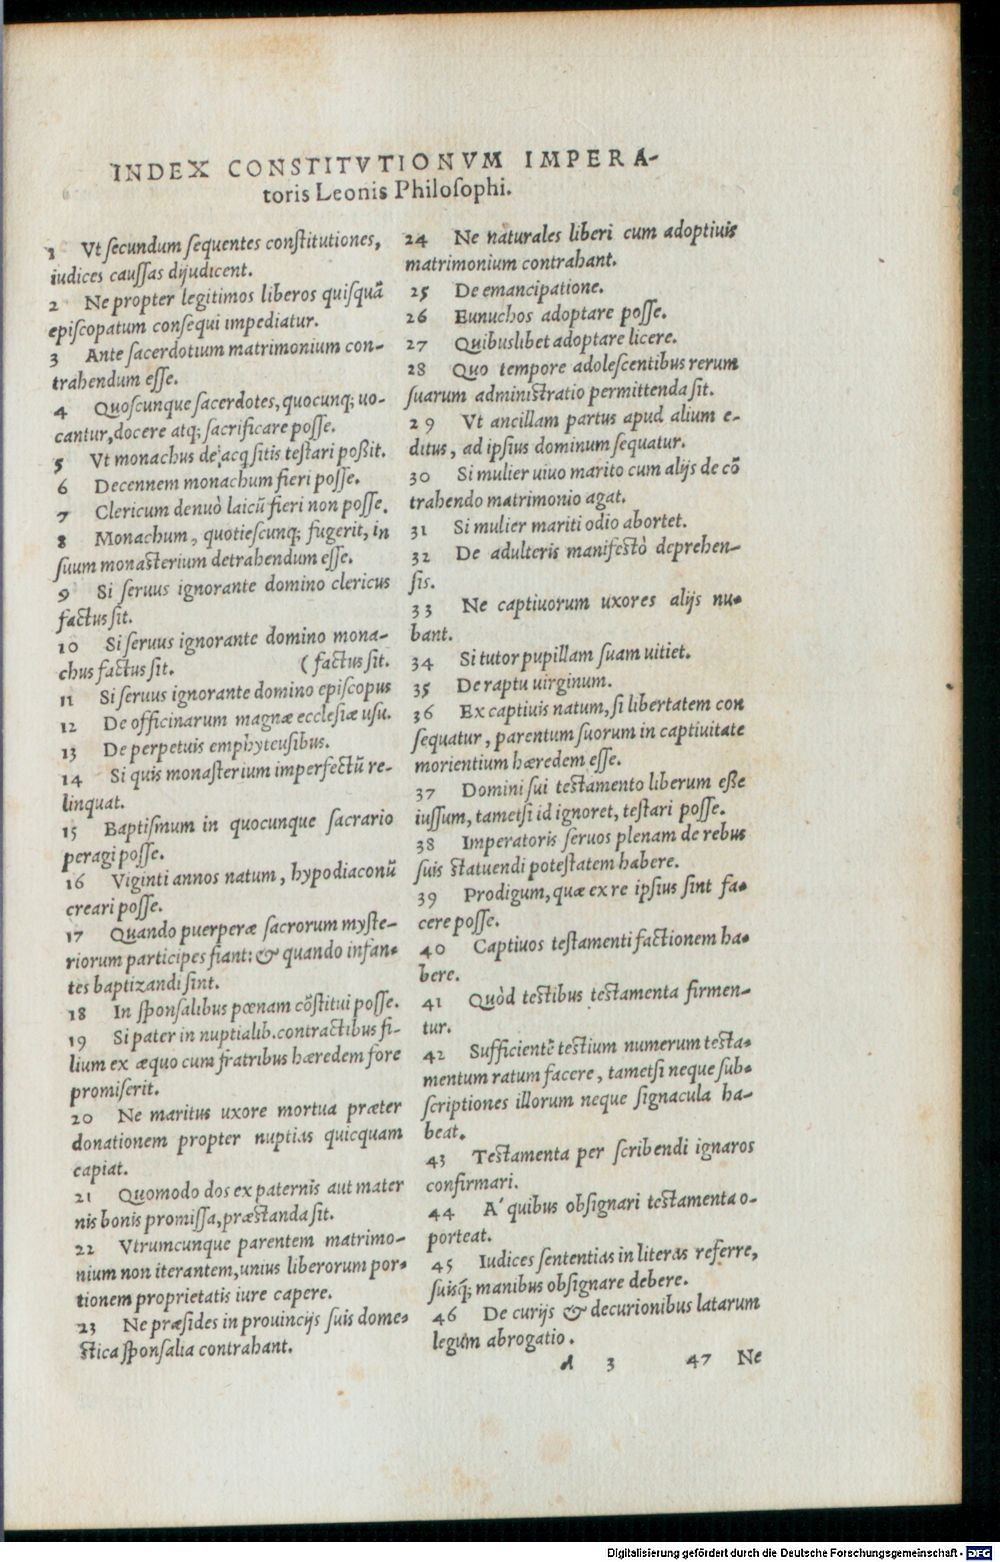 INDEX CONSTITVTIONVM IMPERA-
toris Leonis Philosophi.
1 Vt secundum sequentes constitutiones,
iudices caussas dijudicent.
2 Ne propter legitimos liberos quisquã
episcopatum consequi impediatur.
3 Ante sacerdotium matrimonium con-
trahendum esse.
4 Quoscunque sacerdotes, quocunq; uo-
cantur, docere atq; sacrificare posse.
5 Vt monachus de acqsitis testari poßit.
6 Decennem monachum fieri posse.
7 Clericum denuò laicũ fieri non posse.
8 Monachum, quotiescunq; fugerit, in
suum monasterium detrahendum esse.
9 Si seruus ignorante domino clericus
factus sit.
10 Si seruus ignorante domino mona-
chus factus sit. (factus sit.
11 Si seruus ignorante domino episcopus
12 De officinarum magnæ ecclesiæ usu.
13 De perpetuis emphyteusibus.
14 Si quis monasterium imperfectũ re-
linquat.
15 Baptismum in quocunque sacrario
peragi posse.
16 Viginti annos natum, hypodiaconũ
creari posse.
17 Quando puerperæ sacrorum myste-
riorum participes fiant: & quando infan-
tes baptizandi sint.
18 In sponsalibus pœnam cõstitui posse.
19 Si pater in nuptialib. contractibus fi-
lium ex æquo cum fratribus hæredem fore
promiserit.
20 Ne maritus uxore mortua præter
donationem propter nuptias quicquam
capiat.
21 Quomodo dos ex paternis aut mater
nis bonis promissa, præstanda sit.
22 Vtrumcunque parentem matrimo-
nium non iterantem, unius liberorum por-
tionem proprietatis iure capere.
23 Ne præsides in prouincijs suis dome-
stica sponsalia contrahant.
24 Ne naturales liberi cum adoptiuis
matrimonium contrahant.
25 De emancipatione.
26 Eunuchos adoptare posse.
27 Quibuslibet adoptare licere.
28 Quo tempore adolescentibus rerum
suarum administratio permittenda sit.
29 Vt ancillam partus apud alium e-
ditus, ad ipsius dominum sequatur.
30 Si mulier uiuo marito cum alijs de cõ
trahendo matrimonio agat.
31 Si mulier mariti odio abortet.
32 De adulteris manifestò deprehen-
sis.
33 Ne captiuorum uxores alijs nu-
bant.
34 Si tutor pupillam suam uitiet.
35 De raptu uirginum.
36 Ex captiuis natum, si libertatem con
sequatur, parentum suorum in captiuitate
morientium hæredem esse.
37 Domini sui testamento liberum eße
iussum, tametsi id ignoret, testari posse.
38 Imperatoris seruos plenam de rebus
suis statuendi potestatem habere.
39 Prodigum, quæ ex re ipsius sint fa-
cere posse.
40 Captiuos testamenti factionem ha-
bere.
41 Quòd testibus testamenta firmen-
tur.
42 Sufficientẽ testium numerum testa-
mentum ratum facere, tametsi neque sub-
scriptiones illorum neque signacula ha-
beat.
43 Testamenta per scribendi ignaros
confirmari.
44 A' quibus obsignari testamenta o-
porteat.
45 Iudices sententias in literas referre,
suisq́; manibus obsignare debere.
46 De curijs & decurionibus latarum
legum abrogatio.
A 3 47 Ne
Digitalisierung gefördert durch die Deutsche Forschungsgemeinschaft - DFG